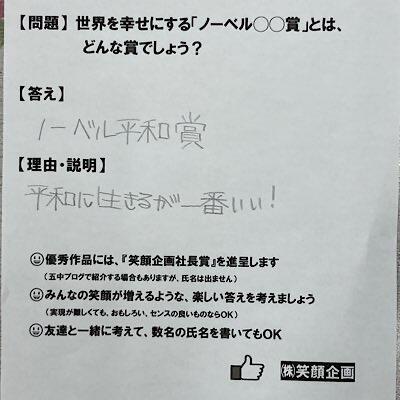 【問題】世界を幸せにする「ノーベル◯◯賞」とは、
どんな賞でしょう？
【答え】
ノーベル平和賞
【理由・説明】
平和に生きるが一番いい！
優秀作品には、『笑顔企画社長賞』を進呈します
（五中ブログで紹介する場合もありますが、氏名は出ません）
みんなの笑顔が増えるような、楽しい答えを考えましょう
（実現が難しくても、おもしろい、センスの良いものならOK）
友達と一緒に考えて、数名の氏名を書いてもOK
㈱笑顔企画